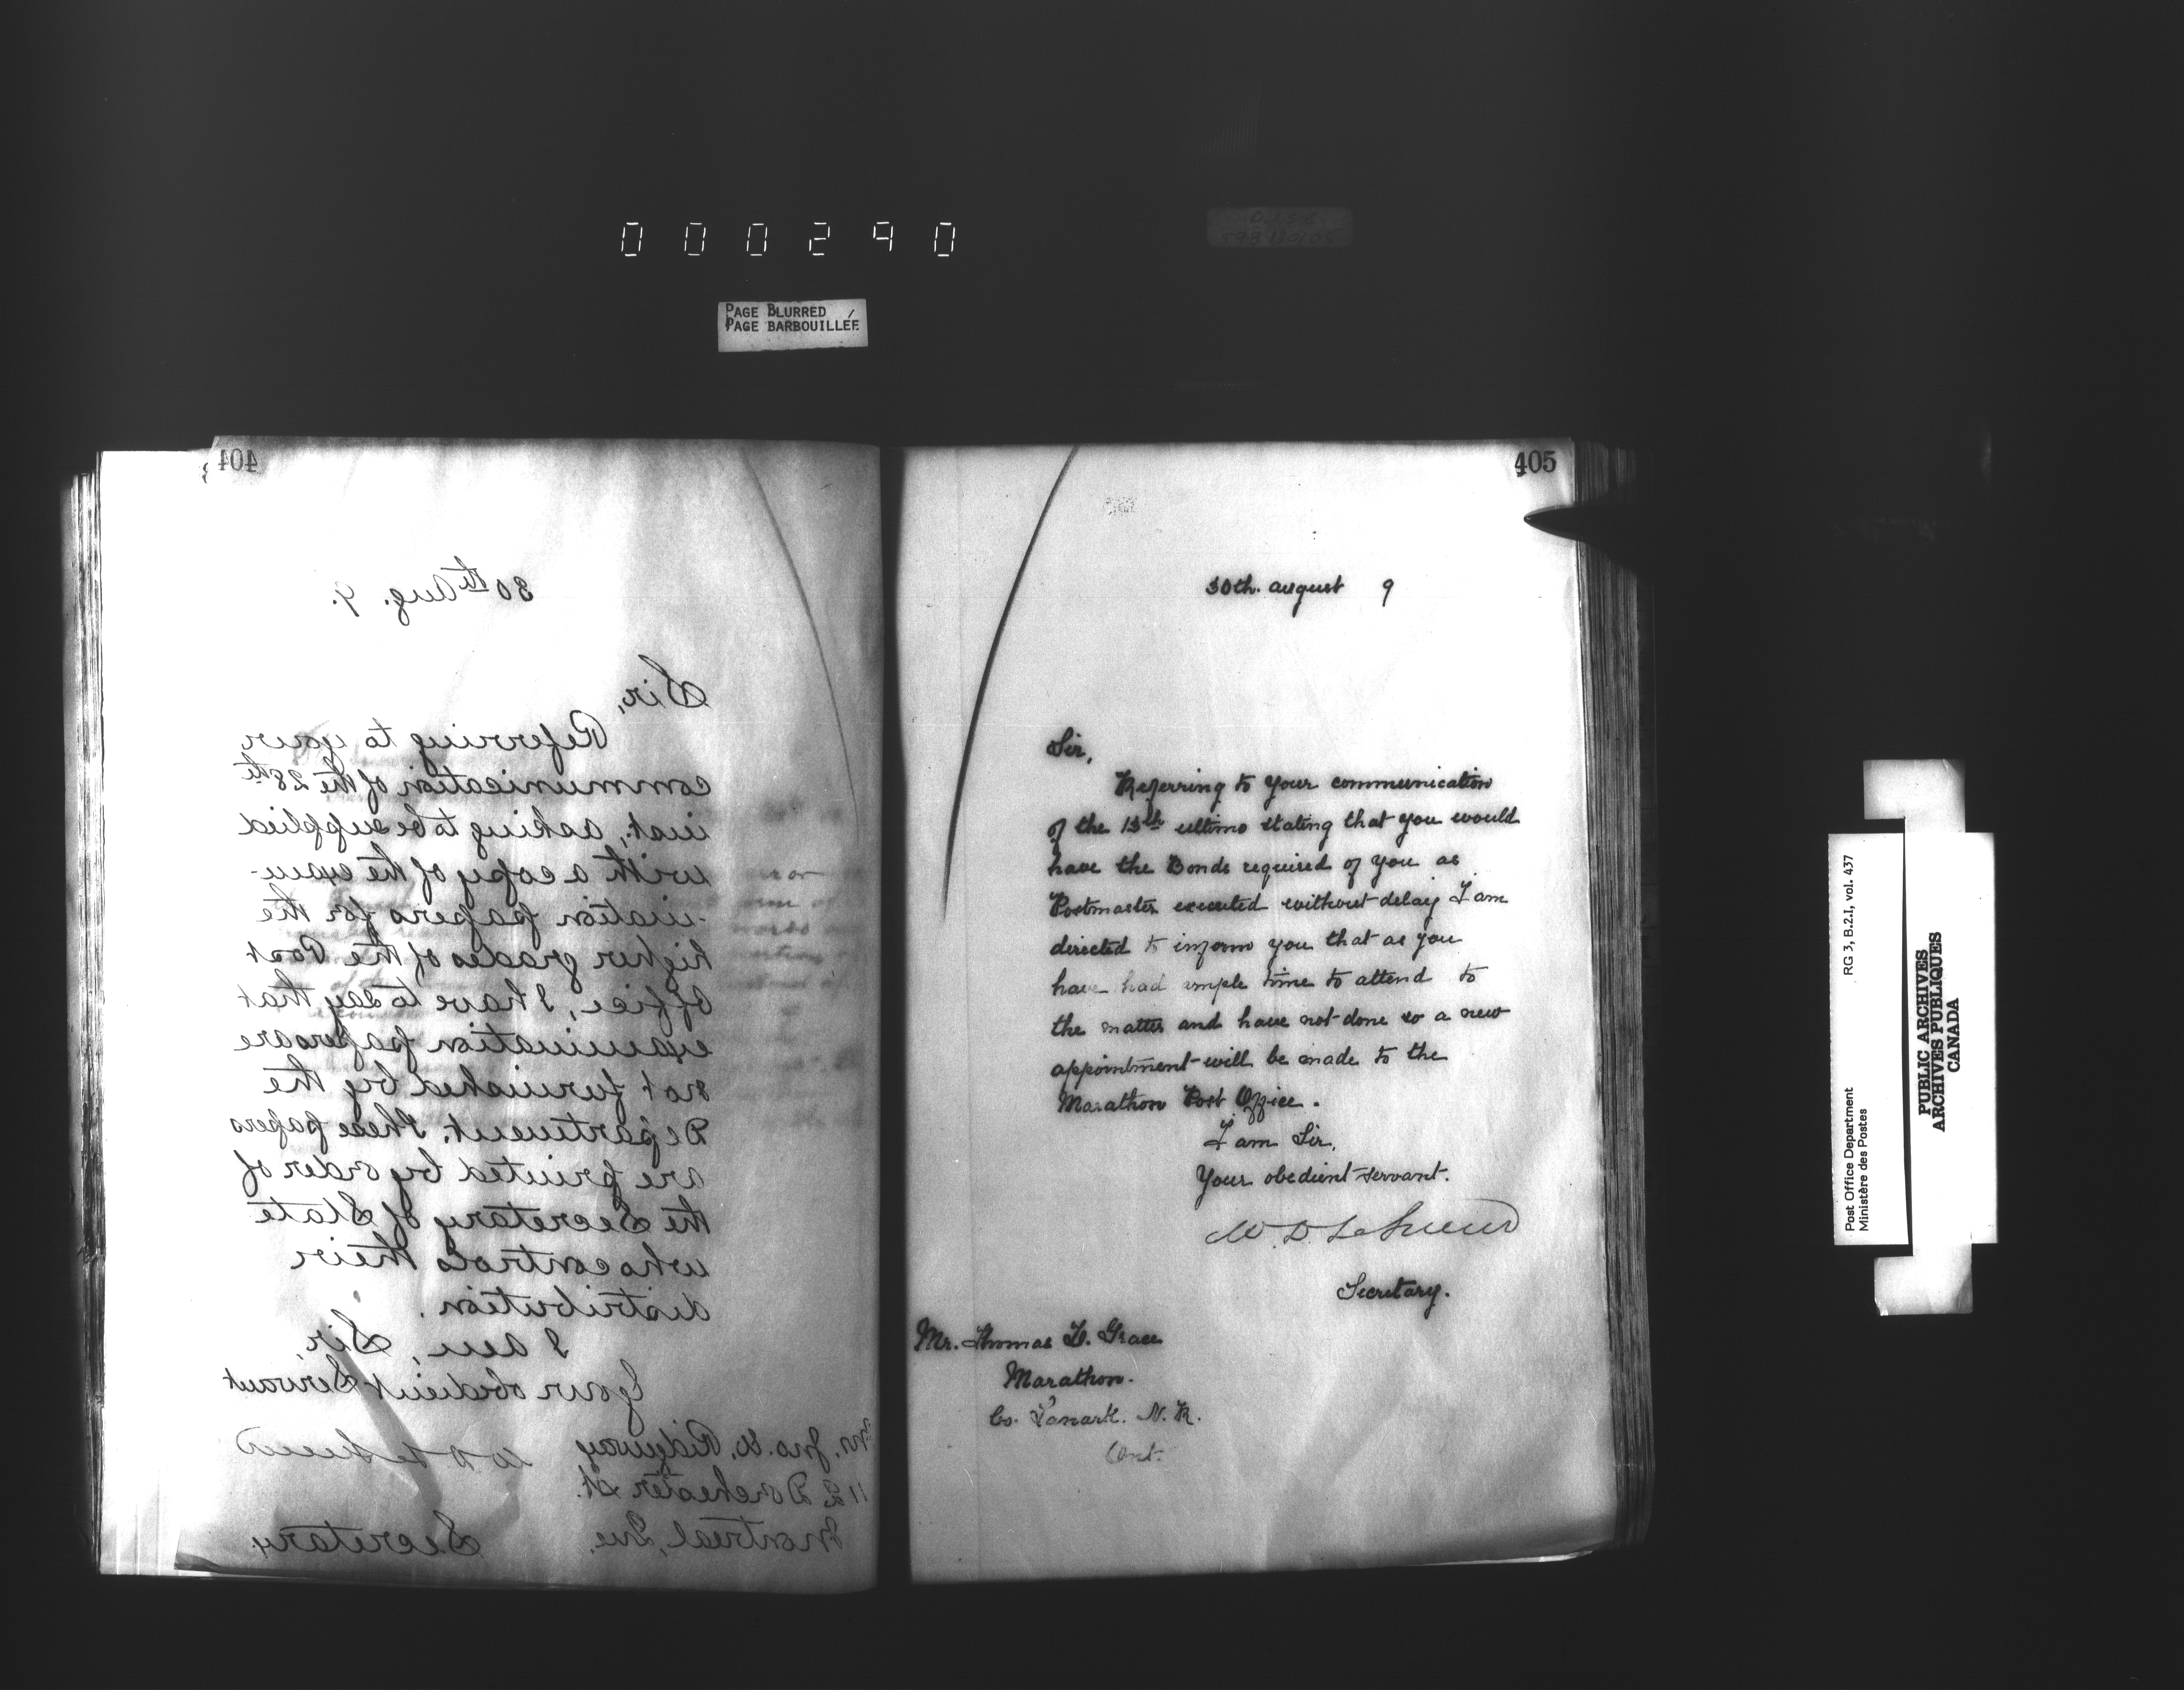 000290
PAGE BLURRED
PAGE BARBOUILLÉE
404
30th Aug. 9.
Sir,
Referring to your
communication of the 28th
inst., asking to be supplied
with a copy of the exam-
-ination papers for the
higher grades of the Post
Office, I have to say that
examination papers are
not furnished by the
Department. These papers
are printed by order of
the Secretary of State
who controls their
distribution.
I am, Sir,
Your obedient Servant
W D LeSueur
Mr. Jno. W. Ridgway
112 Dorchester St.
Montreal, Que.
Secretary
405
30th. august 9
Sir,
Referring to your communication
of the 13th ultimo stating that you would
have the Bonds required of you as
Postmaster executed without delay I am
directed to inform you that as you
have had ample time to attend to
the matter and have not done so a new
appointment will be made to the
Marathon Post Office.
I am Sir,
Your obedient servant.
W. D. LeSueur
Secretary.
Mr. Thomas H. Grace
Marathon.
Co. Lanark. N. R.
Ont.
Post Office Department
Ministère des Postes
RG 3, B.2.I, vol. 437
PUBLIC ARCHIVES
ARCHIVES PUBLIQUES
CANADA